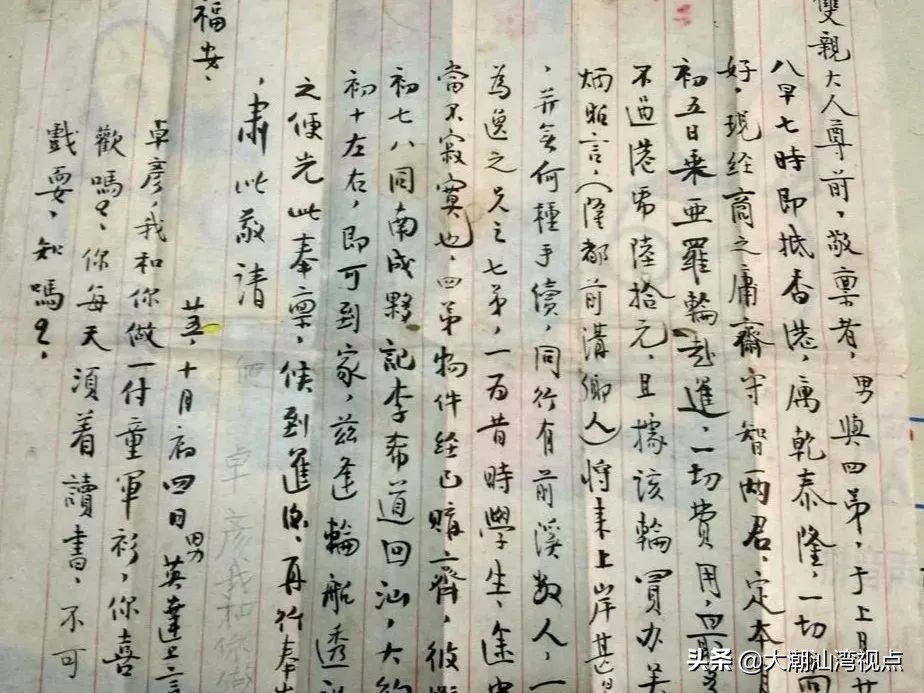 雙親大人尊前，敬禀者，男與四弟，于上月廿
八早七時即抵香港，寓乾泰隆，一切
好，现经商之庸齋守智两君，定本月
初五日乘亜羅輪赴進，一切費用，最多
不過港币陸拾元，且據該輪買办
炳昭言，（隆都前溝鄉人）將来上岸甚
，并無何種手續，同行有前溪数人，一
為逸之兄之七弟，一为昔時學生，途中
當不寂寞也，四弟物件经已購齊，彼
初七八同南成夥記李希道回汕，大约
初十左右，即可到家，兹逢輪船透
之便先此奉禀，候到進後，再行奉
，肃此敬請
福安，
十月初四日 男英達上言
卓彦，我和你做一付童軍衫，你喜
歡嗎？你每天須着讀書，不可
戲耍，知嗎？
卓彦我和你做
头条 @大潮汕湾视点